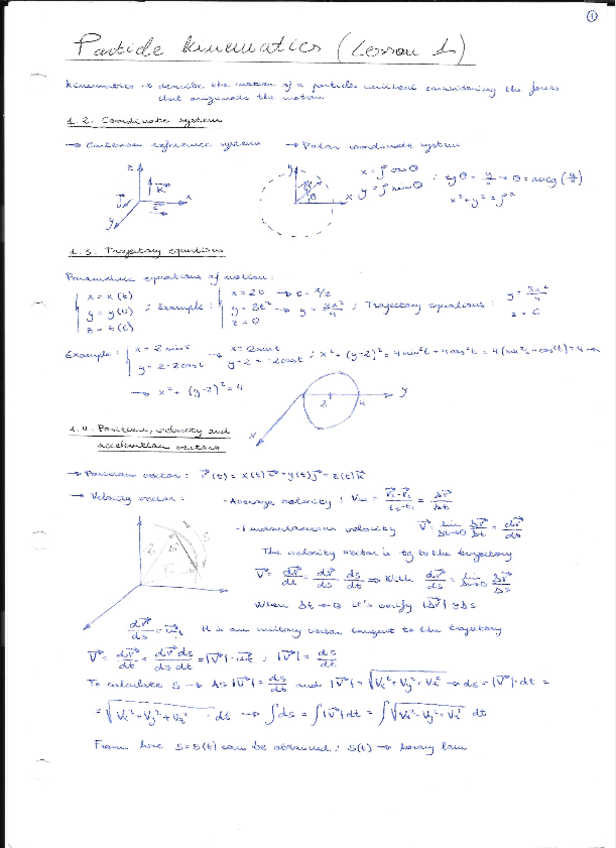 1
Particle kinematics (Lesson 1)
Kinematics → describe the motion of a particle without considering the forces
that originate the motion
1.2. Coordinate system
→ Cartesian reference system → Polar coordinate system
x = ρ cos θ
y = ρ sin θ ; tg θ = y/x → θ = arctg (y/x)
x² + y² = ρ²
z x y
y x θ
1.3. Trajectory equations
Parametric equations of motion:
x = x(t)
y = y(t)
z = z(t)
; Example:
x = 2t → t = x/2
y = 3t² → y = 3x²/4
z = 0
; Trajectory equations:
y = 3x²/4
z = 0
Example: x = 2 sin t → x = 2 sin t
y = 2 - 2 cos t y - 2 = -2 cos t ; x² + (y-2)² = 4 sin² t + 4 cos² t = 4 (sin² t + cos² t) = 4 →
→ x² + (y-2)² = 4
2 4 y
x
1.4. Position, velocity and
acceleration vectors
→ Position vector: r(t) = x(t) i + y(t) j + z(t) k
→ Velocity vector: - Average velocity:
- Instantaneous velocity V = lim Δt→0 Δr/Δt = dr/dt
The velocity vector is tg to the trajectory
V = dr/dt = dr/ds · ds/dt ⇒ With dr/ds = lim Δs→0 Δr/Δs
When Δt → 0 it's verify |Δr| ≈ Δs
dr/ds = It is an unitary vector tangent to the trajectory
V = dr/dt = dr/ds ds/dt = |V| · ; |V| = ds/dt
To calculate s → As |V| = ds/dt and |V| = √(Vx² + Vy² + Vz²) → ds = |V| · dt =
= √(Vx² + Vy² + Vz²) · dt → ∫ds = ∫|V| dt = ∫√(Vx² + Vy² + Vz²) dt
From here s = s(t) can be obtained; s(t) → law